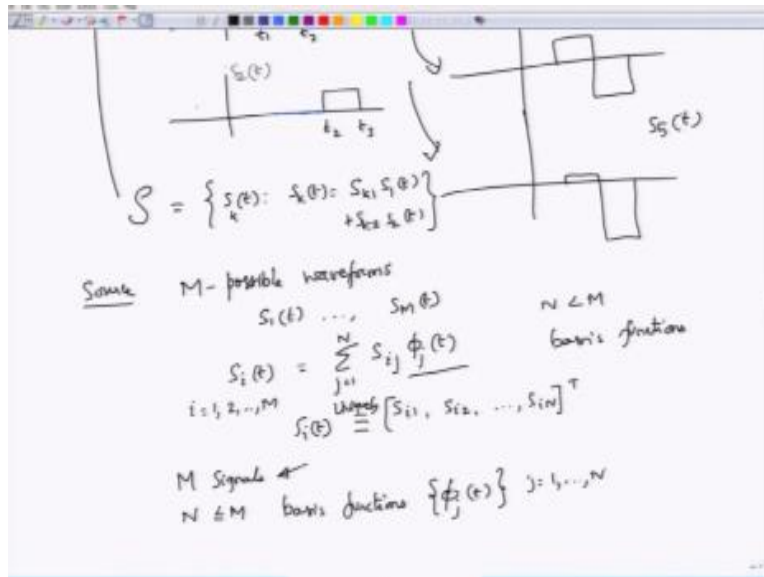 t₁ t₂
S₂(t)
t₂ t₃
S₅(t)
S = { S_k(t): S_k(t) = S_k1 S₁(t)
+ S_k2 S₂(t) }
Source M - possible waveforms
S₁(t) ..., S_M(t) N < M
S_i(t) = Σ_{j=1}^{N} S_ij φ_j(t) basis functions
i = 1, 2, .., M
S_i(t) ≡ [S_i1, S_i2, ..., S_iN]^T
M Signals
N ≤ M basis functions {φ_j(t)} j = 1, ..., N